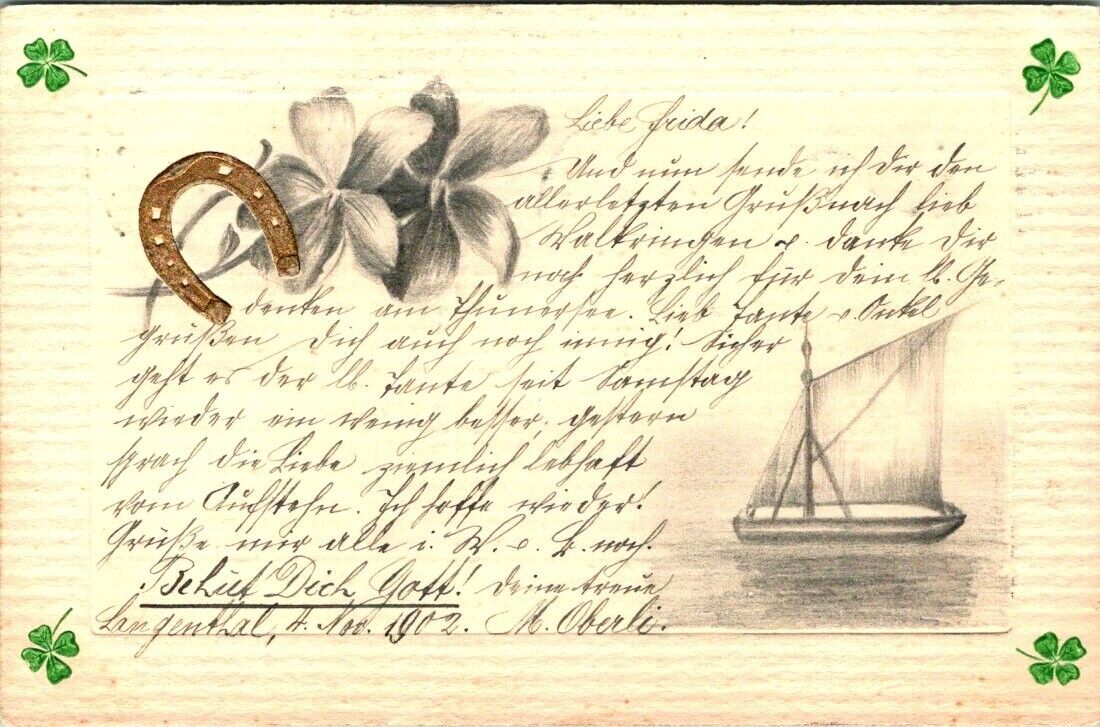 Liebe Frida!
Und nun sende ich Dir den
allerletzten Gruß nach lieb
Walkringen u. danke Dir
noch herzlich für dein lb. Ge-
denken am Thunersee. Lieb Tante u. Onkel
grüßen Dich auch noch innig! Sicher
geht es der lb. Tante seit Samstag
wieder ein wenig besser, gestern
sprach die Liebe ziemlich lebhaft
vom Aufstehn. Ich hoffe wieder!
Grüße mir alle i. W. u. B. noch.
Behüt Dich Gott! Deine treue
Langenthal, 4. Nov. 1902. M. Oberli.